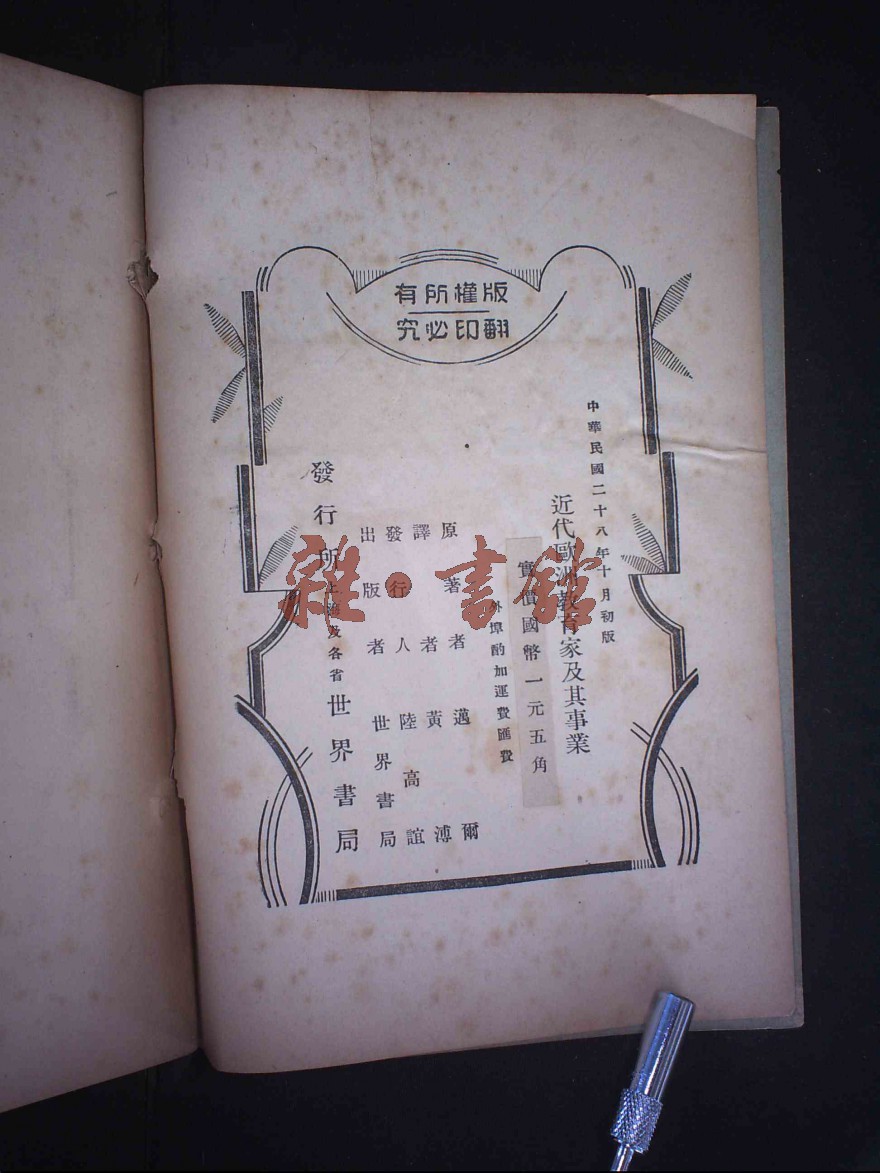 版權所有
翻印必究
中華民國二十八年十月初版
近代歐洲教育家及其事業
實價國幣一元五角
外埠酌加運費匯費
原著者 邁爾
譯者 黃溥
發行人 陸高誼
出版者 世界書局
發行所 上海及各省 世界書局
雜·書館